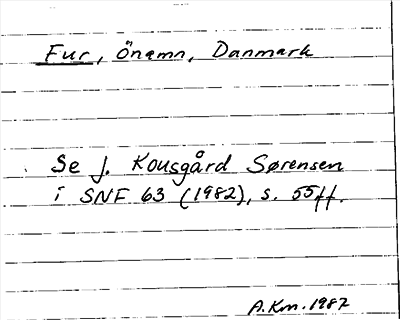 Fur, önamn, Danmark
Se J. Kousgård Sørensen
i SNF 63 (1982), s. 55ff.
A.Km. 1987